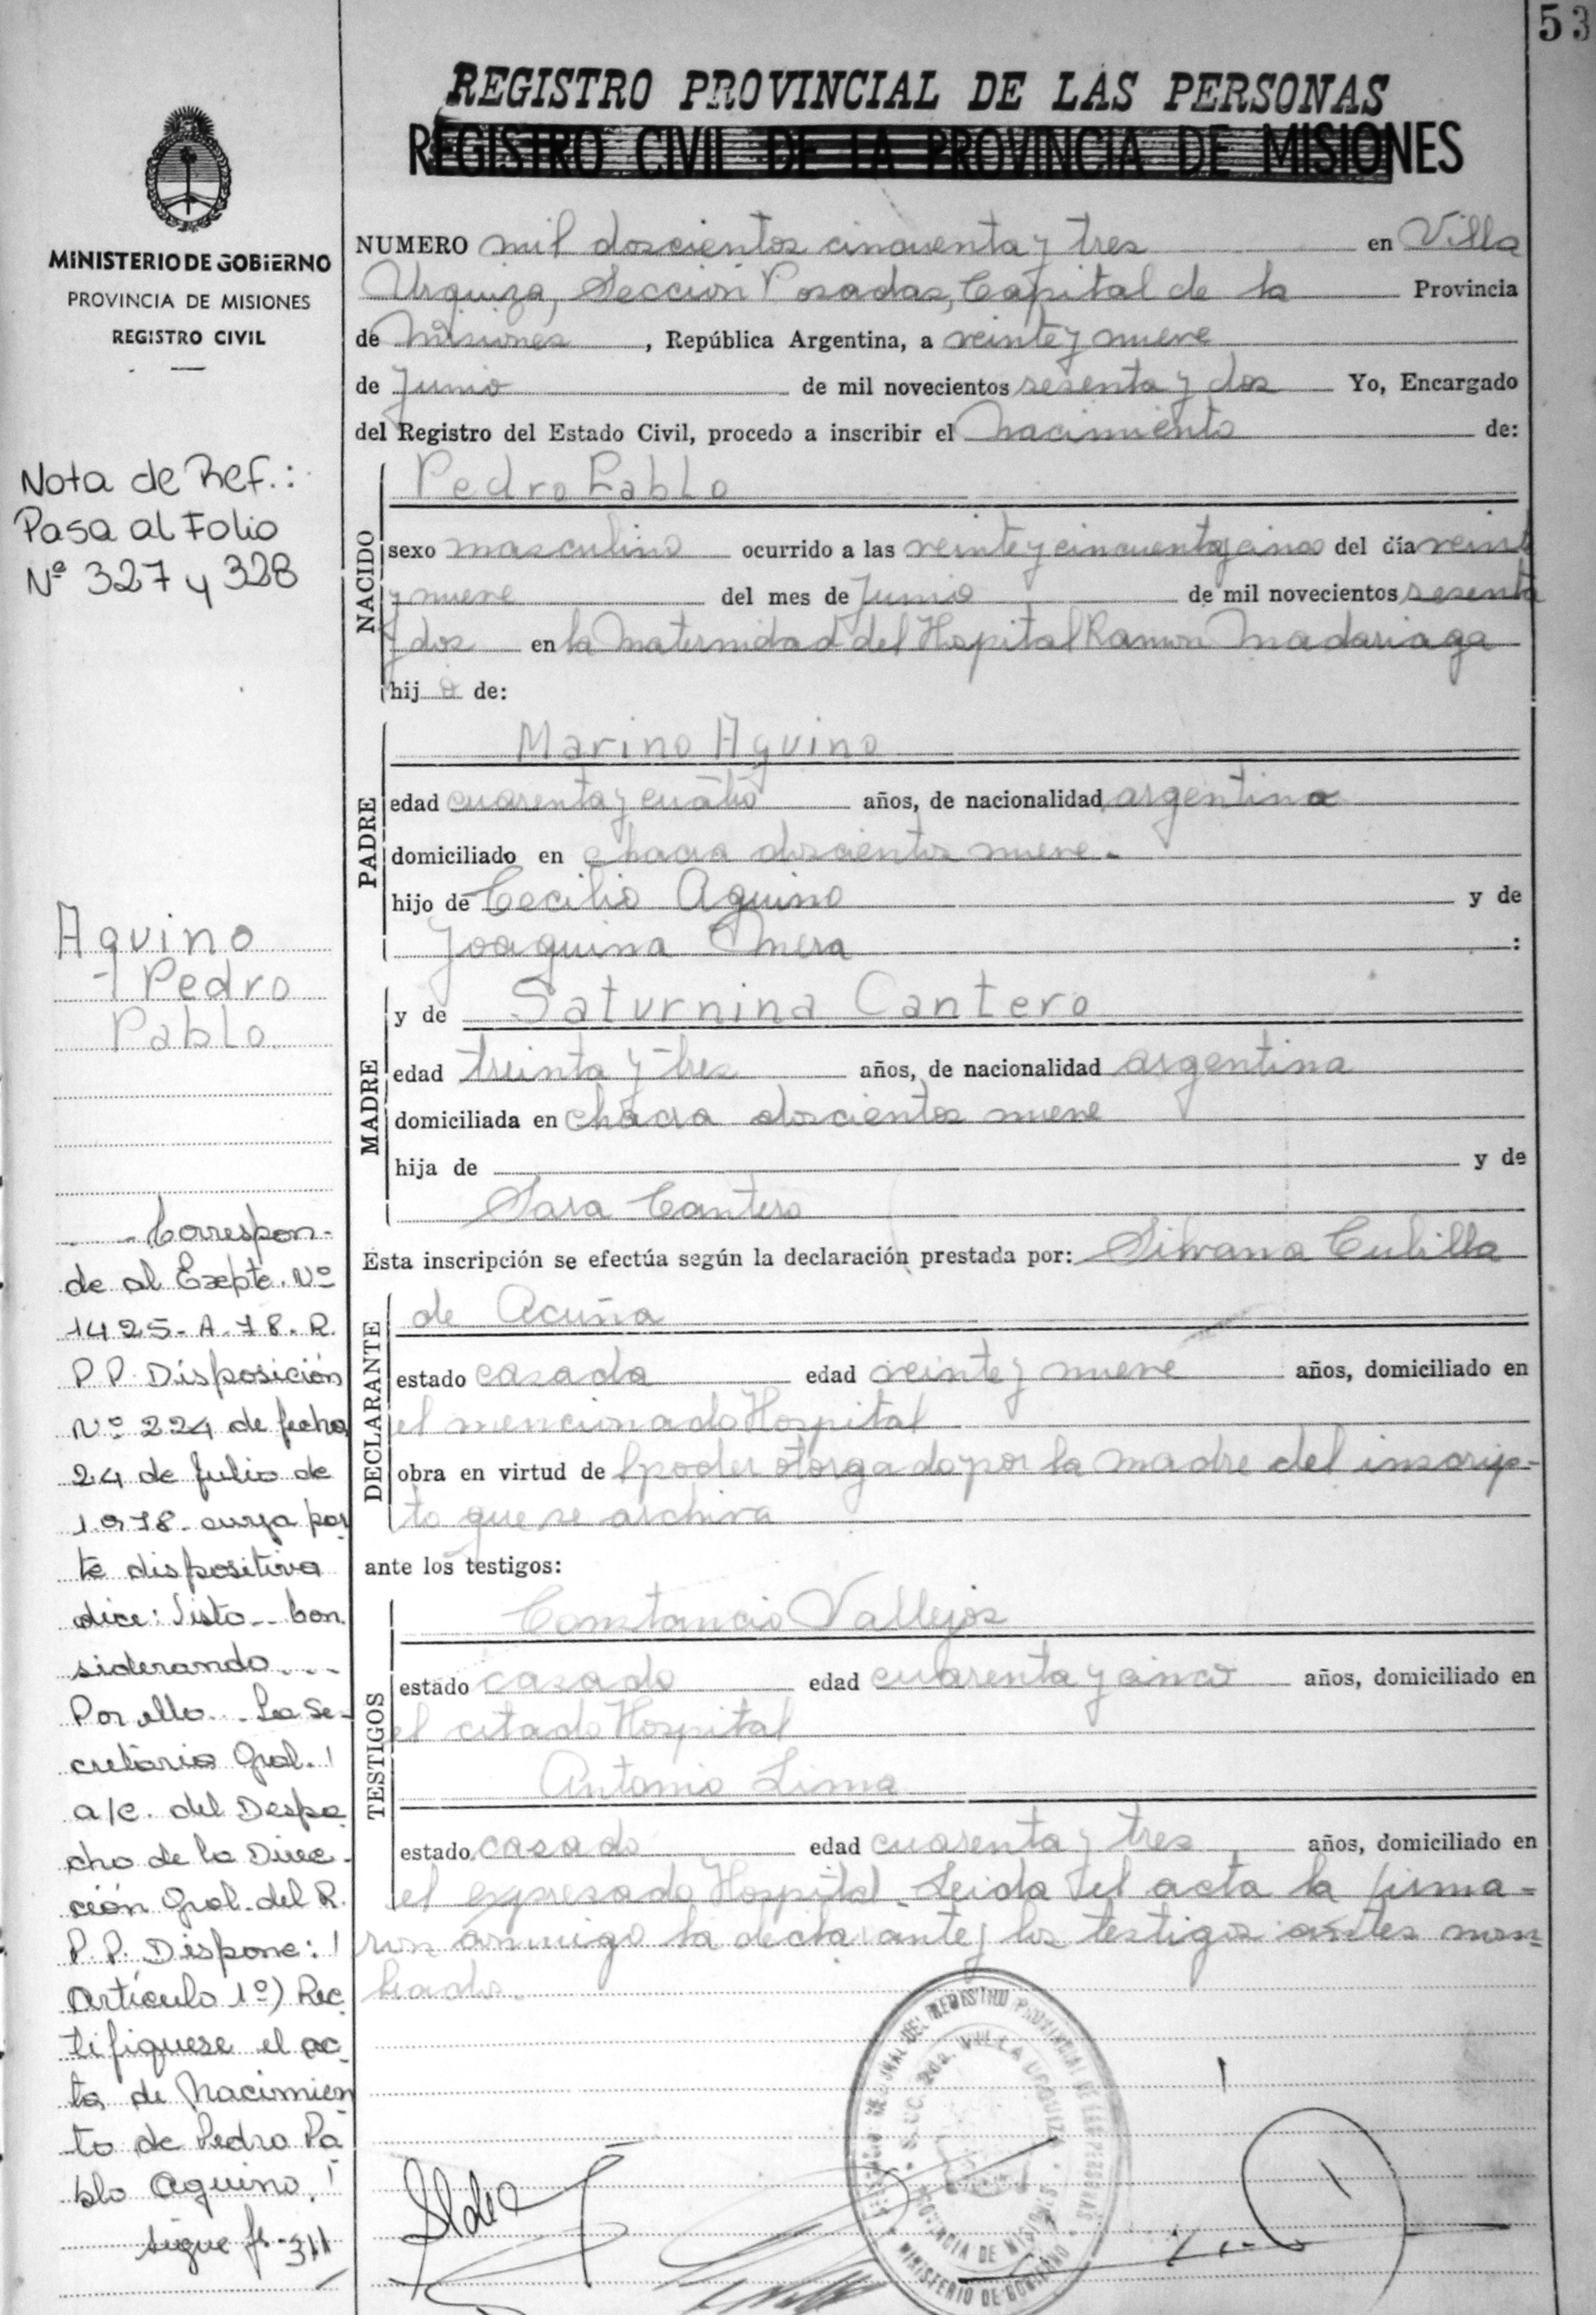 53
REGISTRO PROVINCIAL DE LAS PERSONAS
REGISTRO CIVIL DE LA PROVINCIA DE MISIONES
MINISTERIO DE GOBIERNO
PROVINCIA DE MISIONES
REGISTRO CIVIL
Nota de Ref.:
Pasa al Folio
Nº 327 y 328
Aquino
Pedro
Pablo
Correspon-
de al Expte. Nº
1425-A-78-R.
P.P. Disposición
Nº 224 de fecha
24 de Julio de
1978- cuya par
te dispositiva
dice: Visto-- Con
siderando...
Por ello... La Se-
cretaria Gral.
a/c. del Despa
cho de la Direc-
ción Gral. del R.
P.P. Dispone:
Artículo 1º) Rec
tifiquese el ac-
ta de Nacimien
to de Pedro Pa
blo Aquino.
sigue fs-311
NUMERO mil doscientos cincuenta y tres en Villa
Urquiza, Sección Posadas, Capital de la Provincia
de Misiones, República Argentina, a veinte y nueve
de Junio de mil novecientos sesenta y dos Yo, Encargado
del Registro del Estado Civil, procedo a inscribir el Nacimiento de:
NACIDO
Pedro Pablo
sexo masculino ocurrido a las veinte y cincuenta y cinco del día veinte
y nueve del mes de Junio de mil novecientos sesenta
y dos en la Maternidad del Hospital Ramon Madariaga
hijo de:
PADRE
Marino Aquino
edad cuarenta y cuatro años, de nacionalidad argentina
domiciliado en chacra doscientos nueve.-
hijo de Cecilio Aquino y de
Joaquina Mera :
MADRE
y de Saturnina Cantero
edad treinta y tres años, de nacionalidad argentina
domiciliada en chacra doscientos nueve
hija de y de
Sara Cantero
Esta inscripción se efectúa según la declaración prestada por: Silvana Cubilla
DECLARANTE
de Acuña
estado casada edad veinte y nueve años, domiciliado en
el mencionado Hospital
obra en virtud de l poder otorgado por la madre del inscrip-
to que se archiva
ante los testigos:
TESTIGOS
Constancio Vallejos
estado casado edad cuarenta y cinco años, domiciliado en
el citado Hospital
Antonio Lima
estado casado edad cuarenta y tres años, domiciliado en
el expresado Hospital. Leida el acta la firma-
ron conmigo la declarante y los testigos antes nom-
brados.
REGISTRO PROVINCIAL DE LAS PERSONAS
SUC. 202. VILLA URQUIZA
PROVINCIA DE MISIONES
MINISTERIO DE GOBIERNO